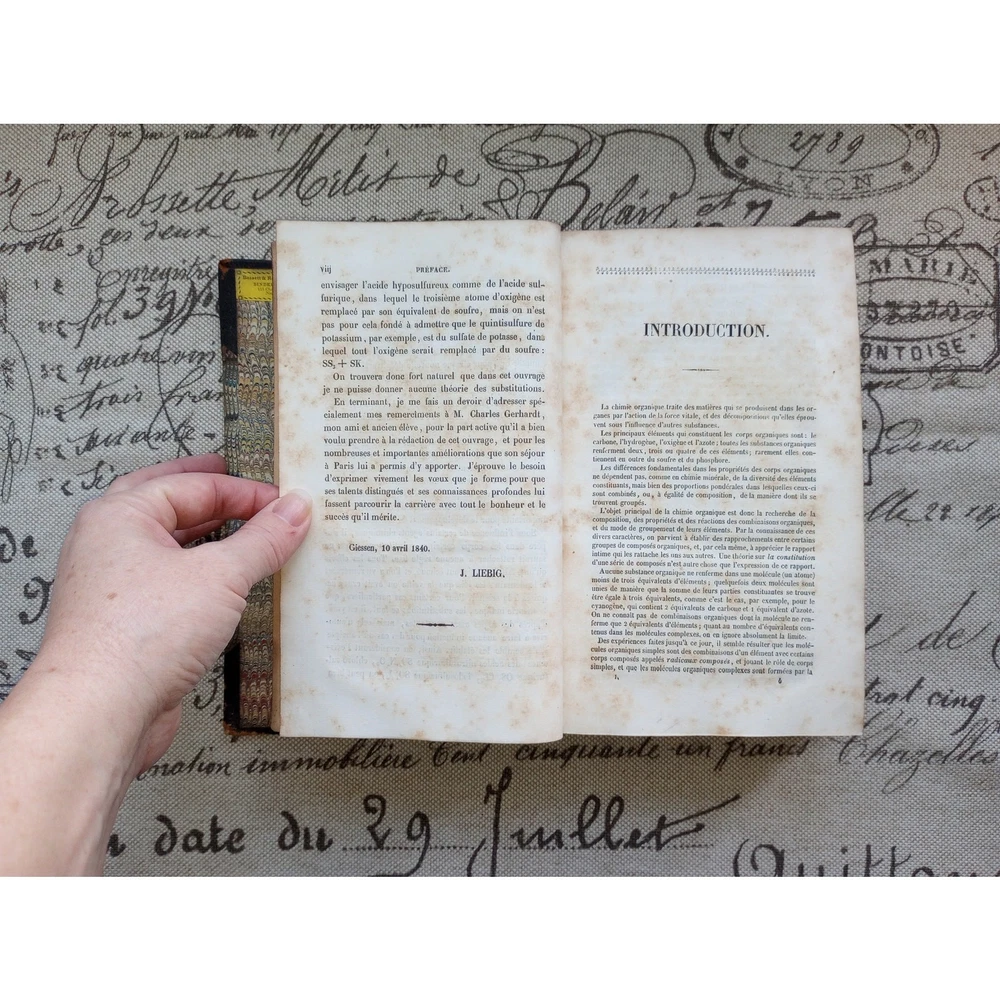 viij PRÉFACE.
envisager l'acide hyposulfureux comme de l'acide sul-
furique, dans lequel le troisième atome d'oxigène est
remplacé par son équivalent de soufre, mais on n'est
pas pour cela fondé à admettre que le quintisulfure de
potassium, par exemple, est du sulfate de potasse, dans
lequel tout l'oxigène serait remplacé par du soufre:
SS, + SK.
On trouvera donc fort naturel que dans cet ouvrage
je ne puisse donner aucune théorie des substitutions.
En terminant, je me fais un devoir d'adresser spé-
cialement mes remercîments à M. Charles Gerhardt,
mon ami et ancien élève, pour la part active qu'il a bien
voulu prendre à la rédaction de cet ouvrage, et pour les
nombreuses et importantes améliorations que son séjour
à Paris lui a permis d'y apporter. J'éprouve le besoin
d'exprimer vivement les vœux que je forme pour que
ses talents distingués et ses connaissances profondes lui
fassent parcourir la carrière avec tout le bonheur et le
succès qu'il mérite.
Giessen, 10 avril 1840.
J. LIEBIG.
INTRODUCTION.
La chimie organique traite des matières qui se produisent dans les or-
ganes par l'action de la force vitale, et des décompositions qu'elles éprou-
vent sous l'influence d'autres substances.
Les principaux éléments qui constituent les corps organiques sont: le
carbone, l'hydrogène, l'oxigène et l'azote; toutes les substances organiques
renferment deux, trois ou quatre de ces éléments; rarement elles con-
tiennent en outre du soufre et du phosphore.
Les différences fondamentales dans les propriétés des corps organiques
ne dépendent pas, comme en chimie minérale, de la diversité des éléments
constituants, mais bien des proportions pondérales dans lesquelles ceux-ci
sont combinés, ou, à égalité de composition, de la manière dont ils se
trouvent groupés.
L'objet principal de la chimie organique est donc la recherche de la
composition, des propriétés et des réactions des combinaisons organiques,
et du mode de groupement de leurs éléments. Par la connaissance de ces
divers caractères, on parvient à établir des rapprochements entre certains
groupes de composés organiques, et, par cela même, à apprécier le rapport
intime qui les rattache les uns aux autres. Une théorie sur la constitution
d'une série de composés n'est autre chose que l'expression de ce rapport.
Aucune substance organique ne renferme dans une molécule (un atome)
moins de trois équivalents d'éléments; quelquefois deux molécules sont
unies de manière que la somme de leurs parties constituantes se trouve
être égale à trois équivalents, comme c'est le cas, par exemple, pour le
cyanogène, qui contient 2 équivalents de carbone et 1 équivalent d'azote.
On ne connaît pas de combinaisons organiques dont la molécule ne ren-
ferme que 2 équivalents d'éléments; quant au nombre d'équivalents con-
tenus dans les molécules complexes, on en ignore absolument la limite.
Des expériences faites jusqu'à ce jour, il semble résulter que les molé-
cules organiques simples sont des combinaisons d'un élément avec certains
corps composés appelés radicaux composés, et jouant le rôle de corps
simples, et que les molécules organiques complexes sont formées par la
1.
2789
LYON
Matis de
Belair
enregistré
fol 39
quatre vin
MARI
PONTOISE
cinq
immobilière Cent cinquante un francs Chazelles
date du 29 Juillet